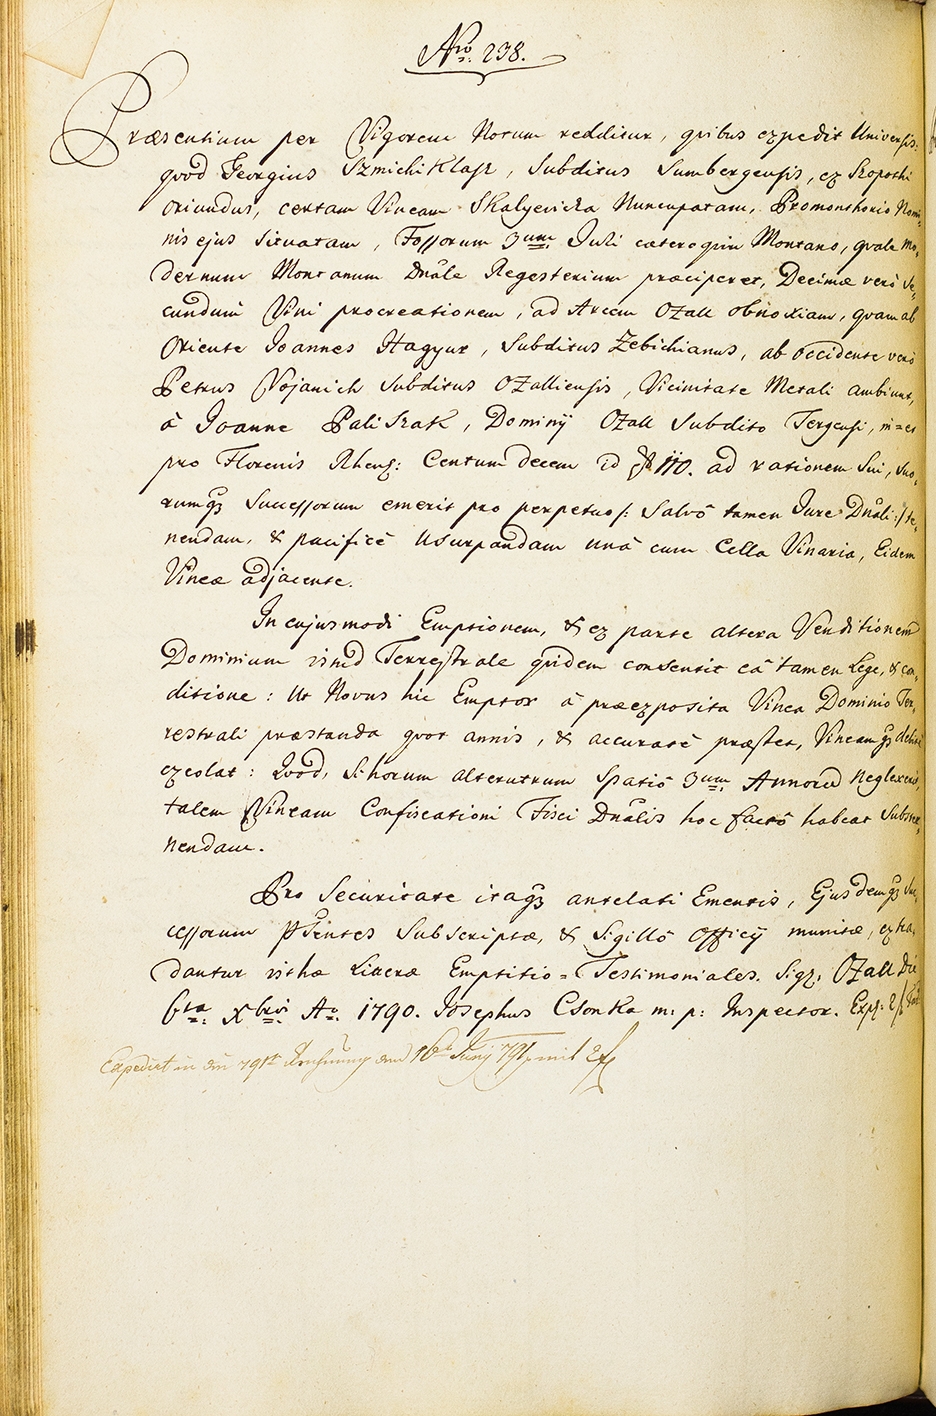 Nro. 238.
Præsentium per Vigorem Notum redditur, quibus expedit Universis:
quod Georgius Szmichiklasz, Subditus Sumbergensis, ex
oriundus, certam Vineam Skalyevicza Nuncupatam, Promonthorio Nomi¬
nis ejus Situatam, Fossorum 3um. Juli cæteroquin Montano, quale Mo¬
dernum Montanum Dnãle Regesterium præciperet, Decimæ verò Se¬
cundum Vini procreationem, ad Arcem Ozall obnoxiam, quam ab
Oriente Joannes Hagyur, Subditus Zebichianus, ab occidente verò
Petrus Vojanich Subditus Ozalliensis, Vicinitate Metali ambiunt,
à Joanne Paliszak, Dominÿ Ozall Subdito Tergensi, in = et
pro Florenis Rhens: Centum decem id est f 110. ad rationem Sui, Suo¬
rumq3 Successorum emerit pro perpetuo /: Salvô tamen Jure Dnãli :/ te¬
nendam, & pacificè Usurpandam unà cum Cella Vinaria, Eidem
Vineæ adjacente.
In cujusmodi Emptionem, & ex parte altera Venditionem
Dominium istud Terrestrale quidem consensit eâ tamen Lege, & co¬
ditione: Ut Novus hic Emptor à præexposita Vinea Dominio Ter¬
restrali præstanda quot annis, & accuratè præstet, Vineamq3 debitè
excolat: Quod, Si horum alterutrum Spatiô 3um. Annorũ Neglexerit,
talem Vineam Confiscationi Fisci Dnãlis hoc factô habeat Substi¬
nendam.
Pro Securitate itaq3 antelati Ementis, Ejusdemq3 Suc¬
cessorum Pñsentes Subscriptæ, & Sigillô Officÿ munitæ, extra¬
dantur isthæ Literæ Emptitio = Testimoniales. Sigz: Ozall Die
6ta. Xbris. Ao. 1790. Josephus Csonka m: p: Inspector. Exp:
Expedirt in die 791st Rechnung den 16ten Junÿ 791, mit 2 f